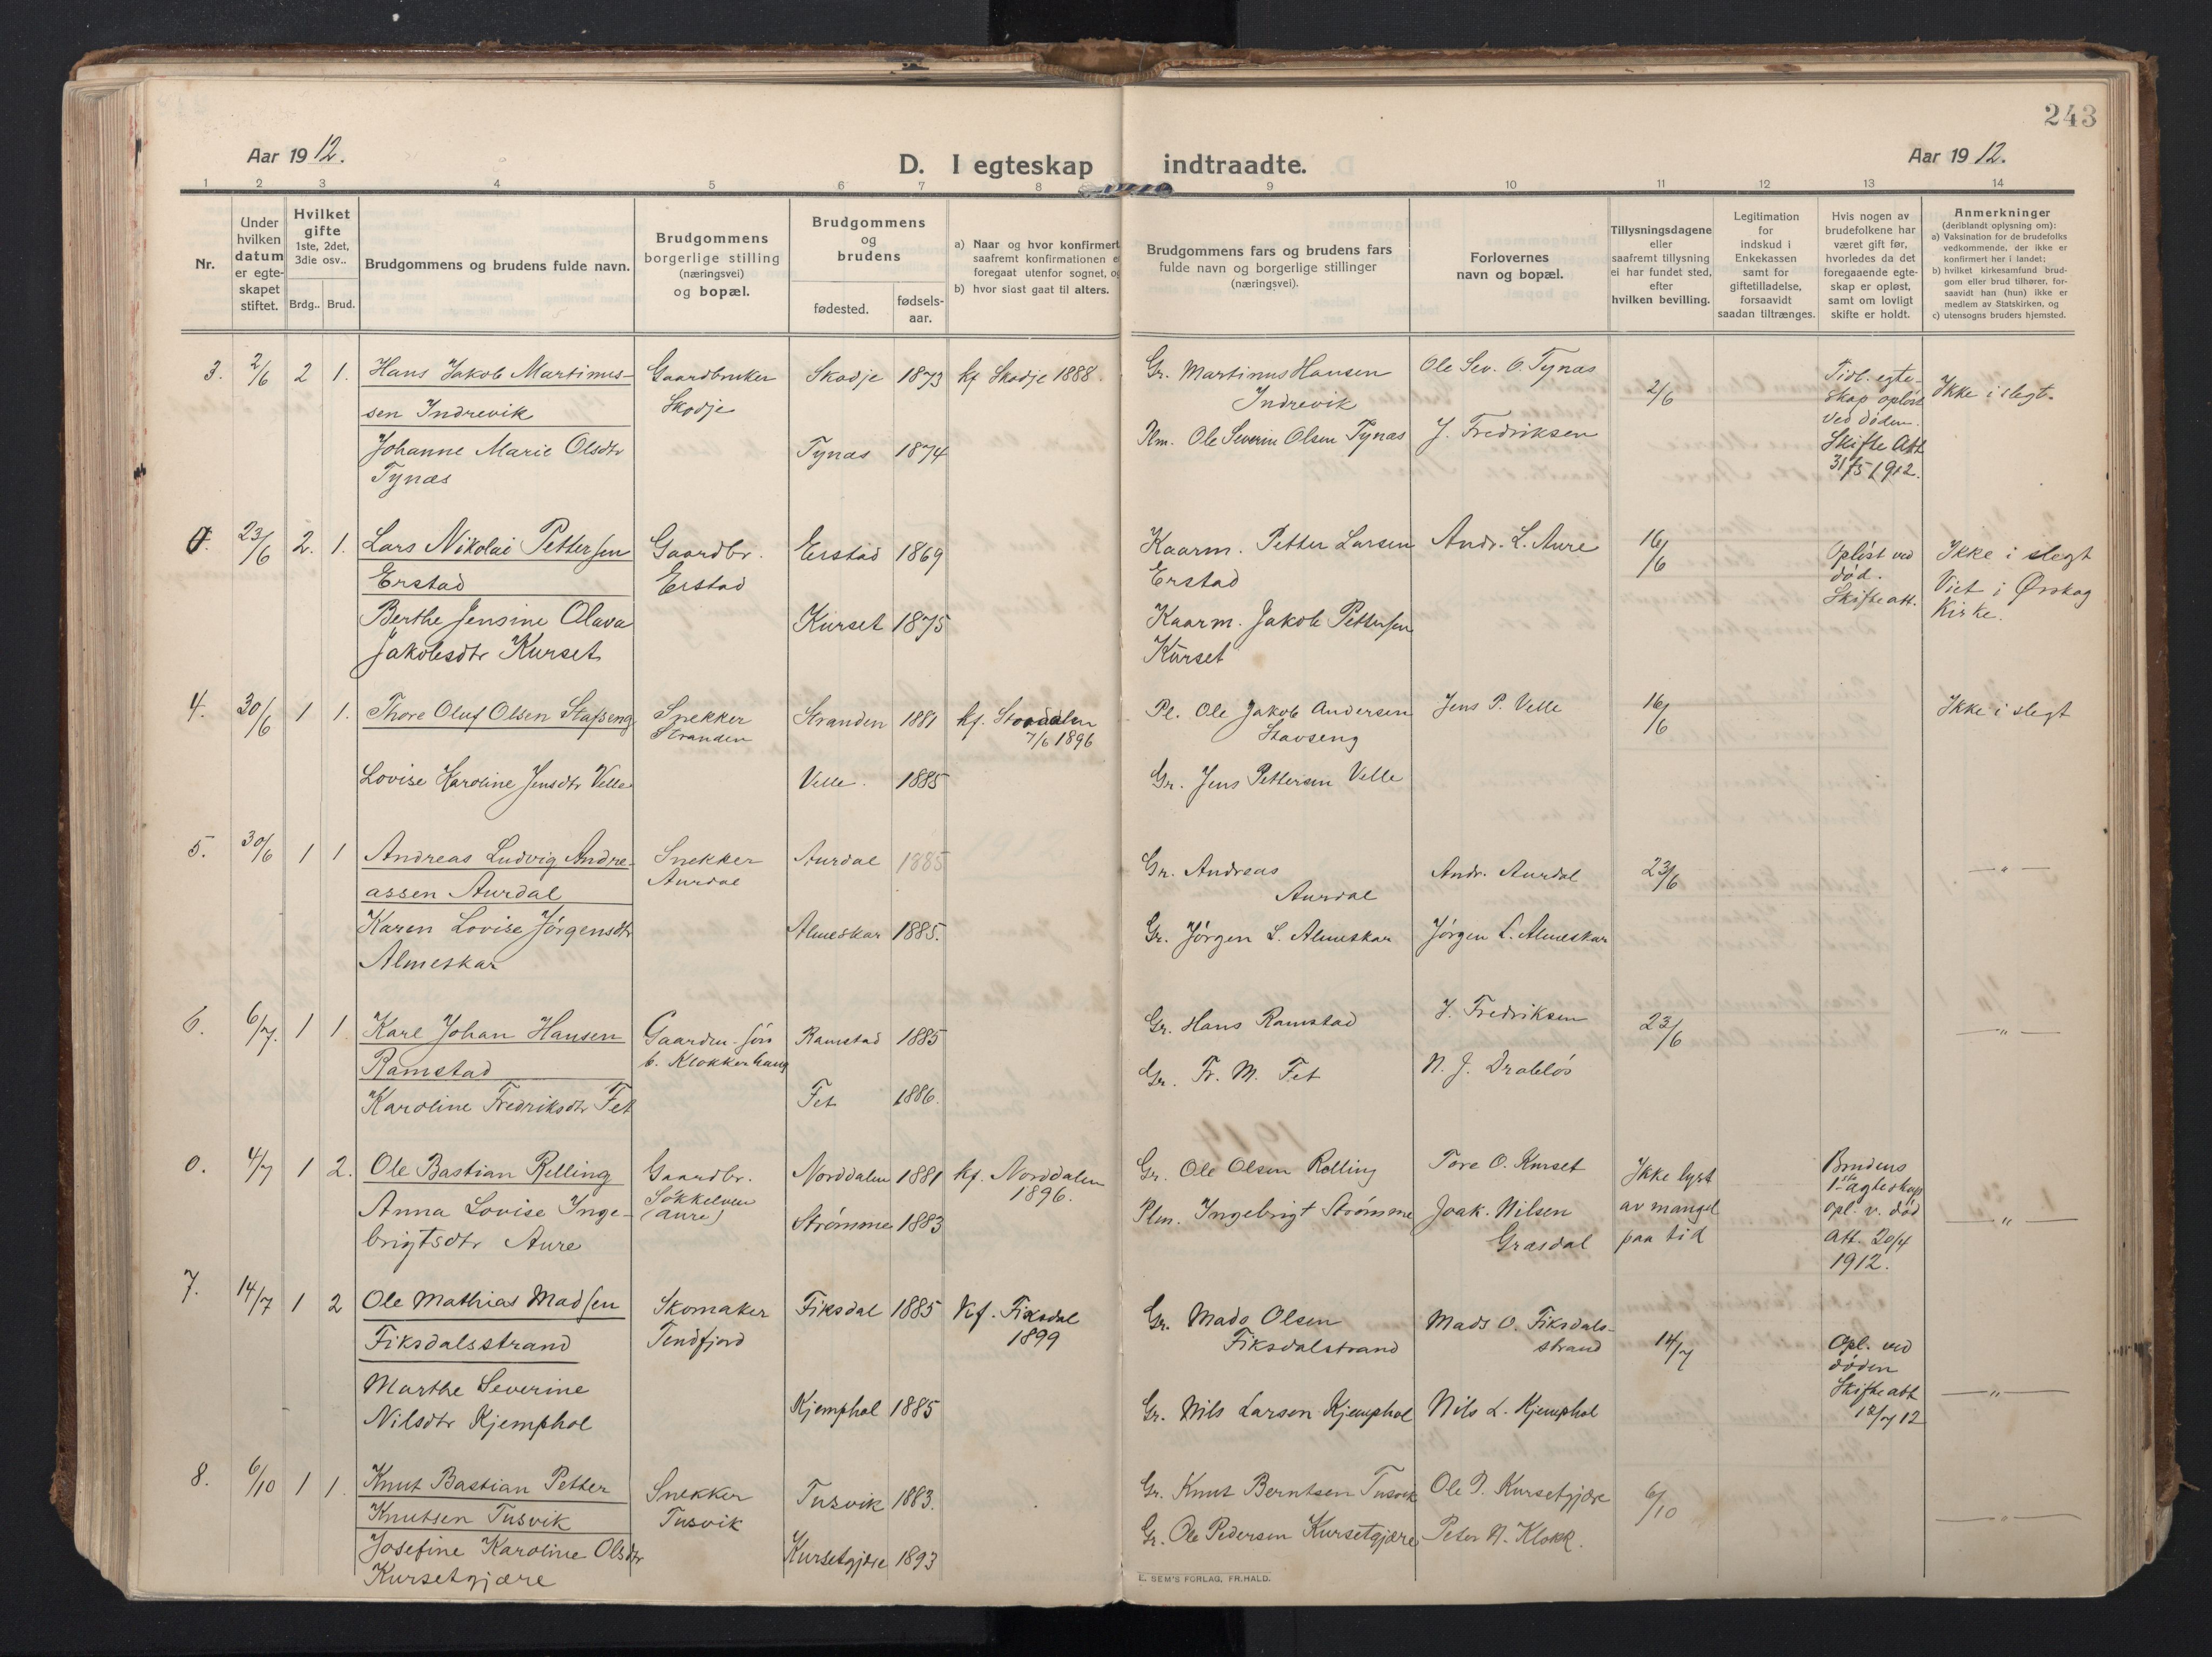 243
Aar 1912.
D. I egteskap indtraadte.
Aar 1912.
1 2 3 4 5 6 7 8 9 10 11 12 13 14
Nr.
Under
hvilken
datum
er egte-
skapet
stiftet.
Hvilket
gifte
1ste, 2det,
3die osv..
Brdg.. Brud.
Brudgommens og brudens fulde navn.
Brudgommens
borgerlige stilling
(næringsvei)
og bopæl.
Brudgommens
og
brudens
fødested.
fødsels-
aar.
a) Naar og hvor konfirmert
saafremt konfirmationen e
foregaat utenfor sognet, og
b) hvor sidst gaat til alters.
Brudgommens fars og brudens fars
fulde navn og borgerlige stillinger
(næringsvei).
Forlovernes
navn og bopæl.
Tillysningsdagene
eller
saafremt tillysning
ei har fundet sted,
efter
hvilken bevilling.
Legitimation
for
indskud i
Enkekassen
samt for
giftetilladelse,
forsaavidt
saadan tiltrænges.
Hvis nogen av
brudefolkene har
været gift før,
hvorledes da det
foregaaende egte-
skap er opløst,
samt om lovligt
skifte er holdt.
Anmerkninger
(deriblandt oplysning om):
a) Vaksination for de brudefolks
vedkommende, der ikke er
konfirmert her i landet;
b) hvilket kirkesamfund brud-
gom eller brud tilhører, for-
saavidt han (hun) ikke er
medlem av Statskirken, og
c) utensogns bruders hjemsted.
3. 2/6 2 1. Hans Jakob Martinus-
sen Indrevik
Johanne Marie Olsdtr
Tynæs
Gaardbruker
Skodje
Skodje 1873 kf Skodje 1888.
Tynæs 1874
Gr. Martinus Hansen
Indrevik
Ole Severin Olsen Tynæs
Ole Sev. O. Tynæs
J. Fredriksen
2/6
Tidl. egte-
skap opløst
ved døden.
Skifte Att
31/5 1912.
Ikke i slegt.
0. 23/6 2. 1. Lars Nikolai Pettersen
Erstad
Berthe Jensine Olava
Jakobsdtr Kurset
Gaardbr.
Erstad
Erstad 1869
Kurset 1875
Kaarm. Petter Larsen
Erstad
Kaarm. Jakob Pettersen
Kurset
Andr. L. Aure
16/6
Opløst ved
død.
Skifteatt.
Ikke i slegt
Viet i Ørskog
Kirke.
4. 30/6 1 1. Thore Oluf Olsen Stafseng
Lovise Karoline Jensdtr Velle
Snekker
Stranden
Stranden 1881 kf.
7/6 1896
Velle. 1885
Pl. Ole Jakob Andersen
Stavseng
Gr. Jens Pettersen Velle
Jens P. Velle
16/6
Ikke i slegt
5. 30/6 1 1 Andreas Ludvig Andre-
assen Aurdal
Karen Lovise Jørgensdtr
Almeskar
Snekker
Aurdal
Aurdal 1885
Almeskar 1885.
Gr. Andreas
Aurdal
Gr. Jørgen L. Almeskar
Andr. Aurdal
Jørgen L. Almeskar
23/6
—"—
6. 6/7. 1 1 Karl Johan Hansen
Ramstad
Karoline Fredriksdtr Fet
b. Klokkerhaug
Ramstad 1885
Fet 1886.
Gr. Hans Ramstad
Gr. Fr. M. Fet
J. Fredriksen
N. J. Drabløs
23/6
—"—
0. 4/7 1 2. Ole Bastian Relling
Anna Lovise Inge-
brigtsdtr Aure
Gaardbr.
Søkkelven
(Aure)
Norddalen 1881 kf. Norddalen
1896.
Strømme 1883
Gr. Ole Olsen Relling
Plm. Ingebrigt Strømme
Tore O. Kurset
Joak. Nilsen
Græsdal
Ikke lyst
av mangel
paa tid
Brudens
1ste ægteskap
opl. v. død
Att. 20/4
1912.
—"—
7. 14/7 1 2 Ole Mathias Madsen
Fiksdalsstrand
Marthe Severine
Nilsdtr Kjemphol
Skomaker
Tendfjord
Fiksdal 1885 Kf. Fiksdal
1899
Kjemphol 1885
Gr. Mads Olsen
Fiksdalstrand
Gr. Nils Larsen Kjemphol
Mads O. Fiksdals-
strand
Nils L. Kjemphol
14/7
Opl. ved
døden
Skifteatt
12/7 12
—"—
8. 6/10 1 1. Knut Bastian Petter
Knutsen Tusvik
Josefine Karoline Olsdtr
Kursetgjære
Snekker
Tusvik
Tusvik 1883.
Kursetgjære 1893
Gr. Knut Berntsen Tusvik
Gr. Ole Pedersen Kursetgjære
Ole P. Kursetgjære
Peter N. Klokk.
6/10
—"—
E. SEM'S FORLAG, FR.HALD.